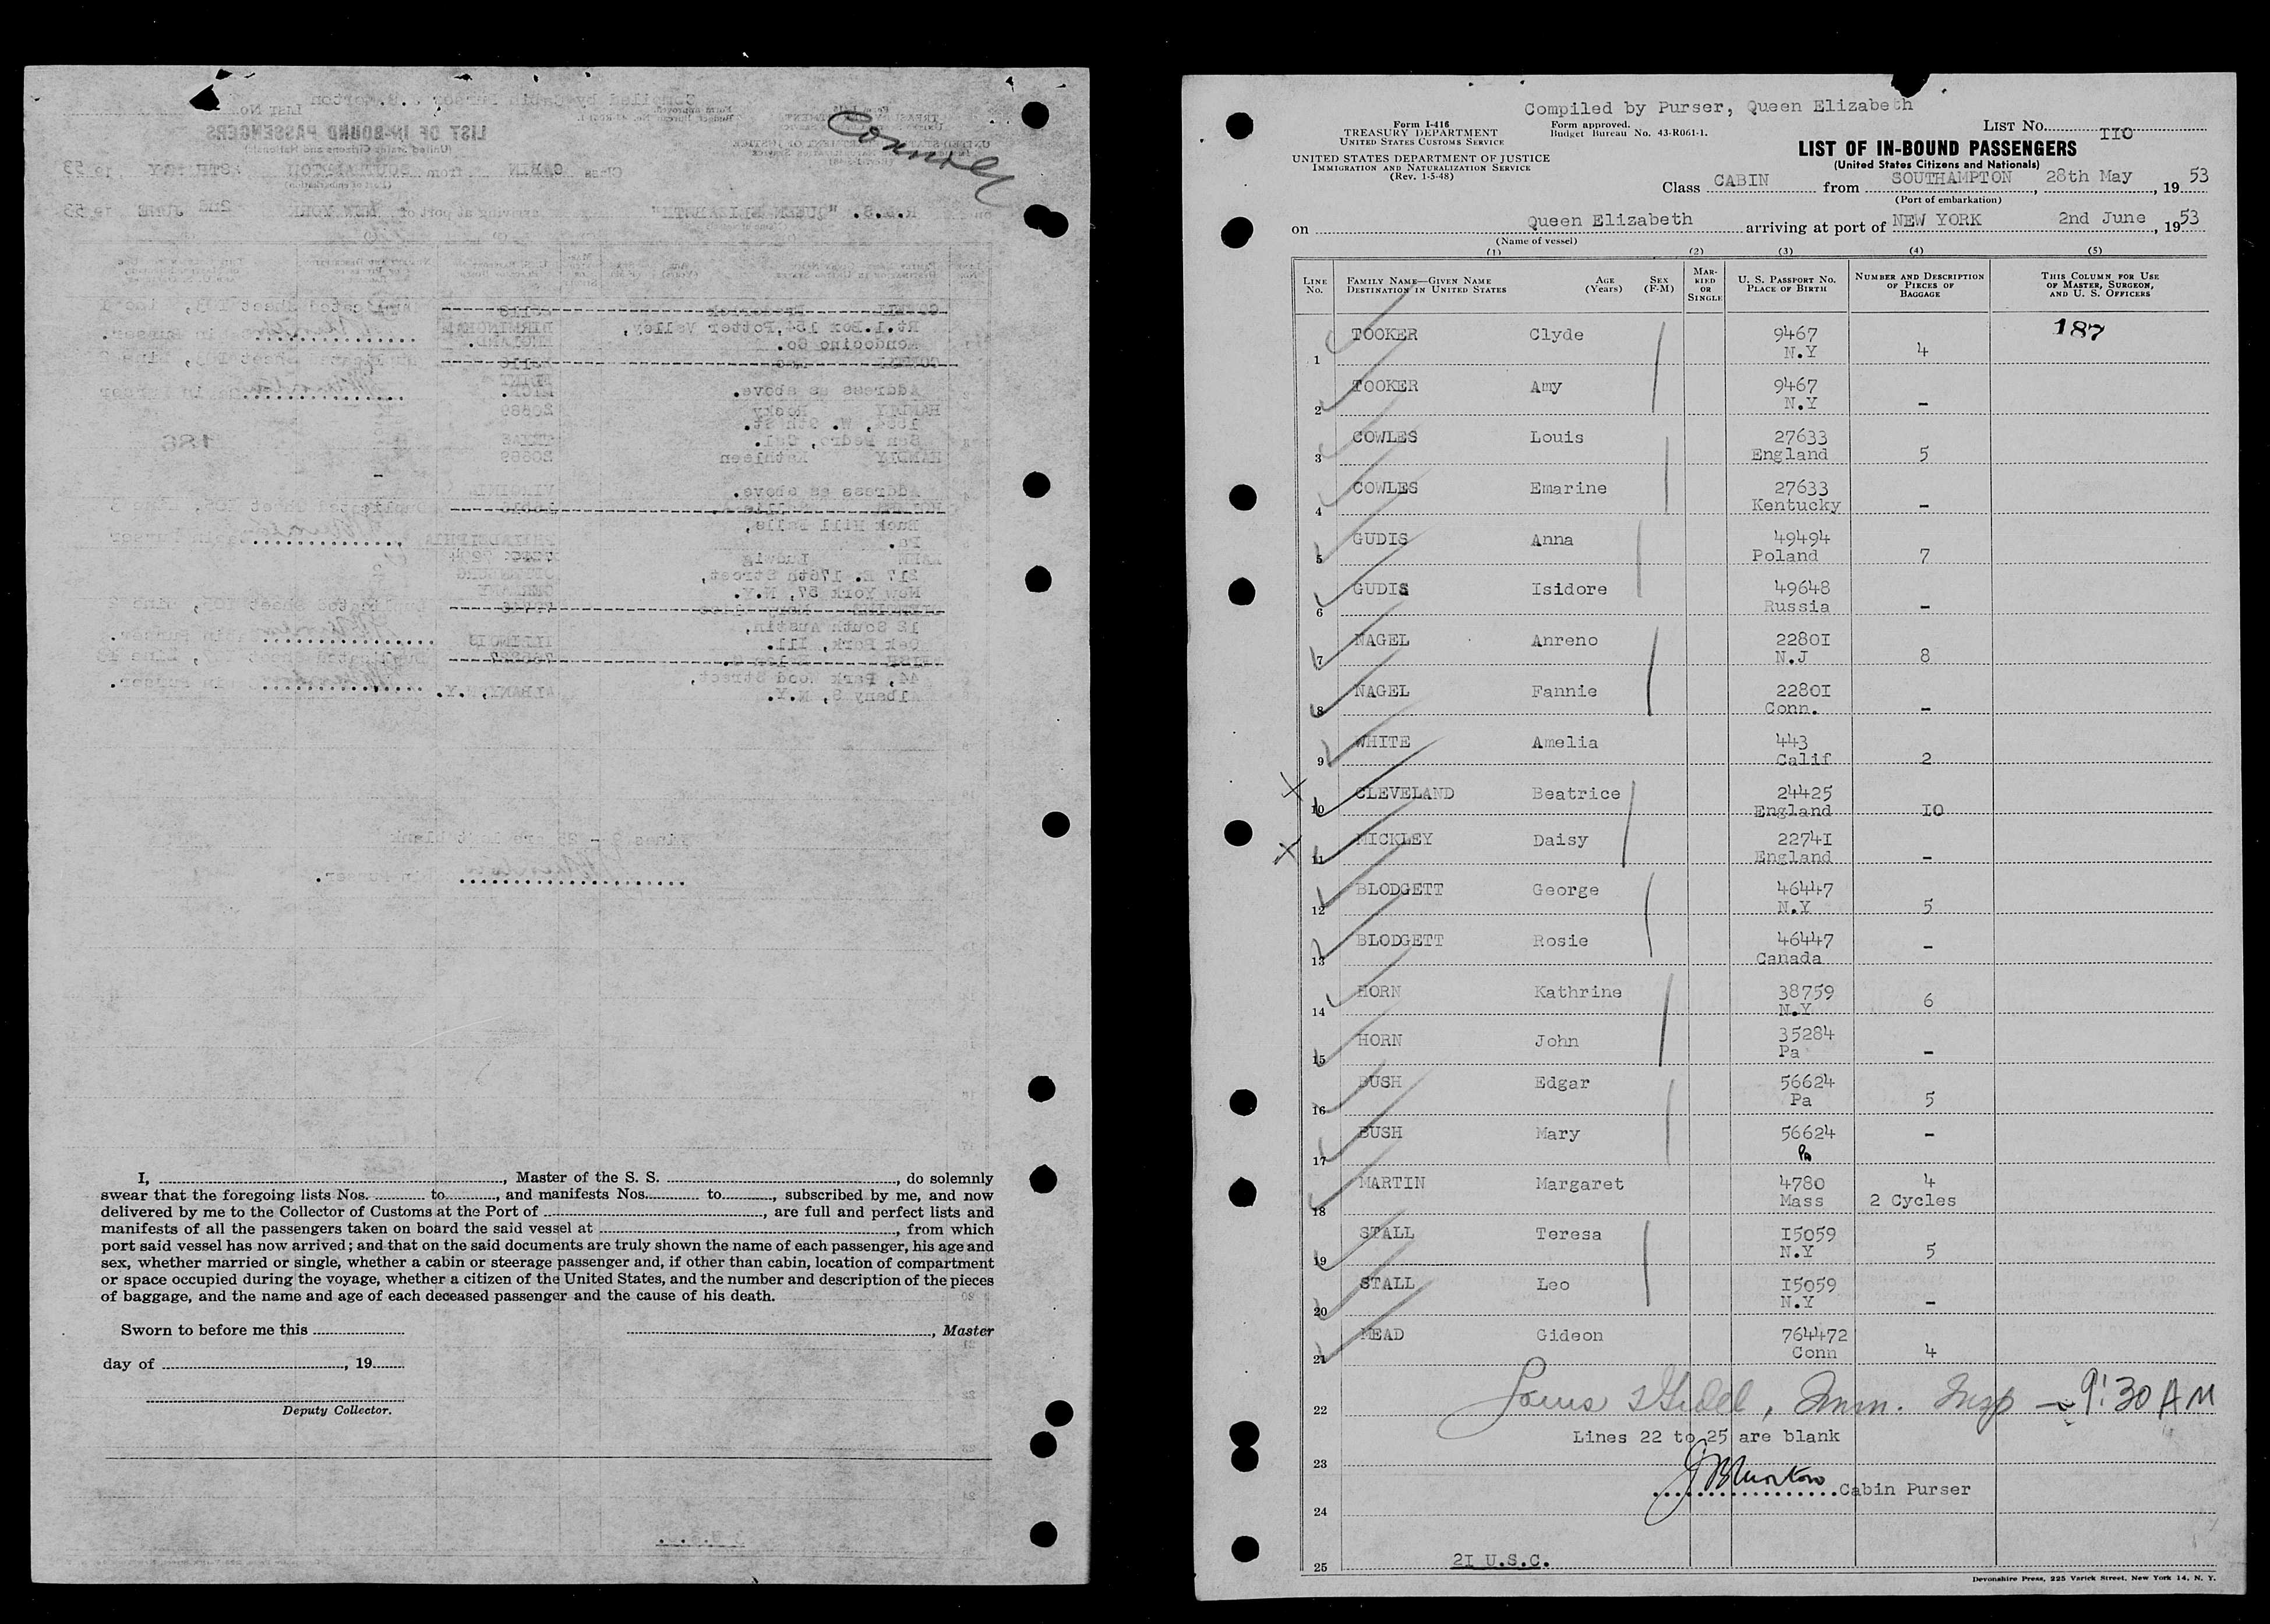 Connolly
I, ____, Master of the S. S. ____, do solemnly
swear that the foregoing lists Nos. ____ to ____, and manifests Nos. ____ to ____, subscribed by me, and now
delivered by me to the Collector of Customs at the Port of ____, are full and perfect lists and
manifests of all the passengers taken on board the said vessel at ____, from which
port said vessel has now arrived; and that on the said documents are truly shown the name of each passenger, his age and
sex, whether married or single, whether a cabin or steerage passenger and, if other than cabin, location of compartment
or space occupied during the voyage, whether a citizen of the United States, and the number and description of the pieces
of baggage, and the name and age of each deceased passenger and the cause of his death.
Sworn to before me this ____ ____, Master
day of ____, 19____
Deputy Collector.
Compiled by Purser, Queen Elizabeth
Form I-416
TREASURY DEPARTMENT
UNITED STATES CUSTOMS SERVICE
Form approved.
Budget Bureau No. 43-R061-1.
LIST No. 110
UNITED STATES DEPARTMENT OF JUSTICE
IMMIGRATION AND NATURALIZATION SERVICE
(Rev. 1-5-48)
LIST OF IN-BOUND PASSENGERS
(United States Citizens and Nationals)
Class CABIN from SOUTHAMPTON, 28th May, 19 53
(Port of embarkation)
on Queen Elizabeth arriving at port of NEW YORK 2nd June, 19 53
(Name of vessel)
(1) (2) (3) (4) (5)
LINE No. FAMILY NAME—GIVEN NAME DESTINATION IN UNITED STATES AGE (Years) SEX (F-M) MARRIED OR SINGLE U. S. PASSPORT NO. PLACE OF BIRTH NUMBER AND DESCRIPTION OF PIECES OF BAGGAGE THIS COLUMN FOR USE OF MASTER, SURGEON, AND U. S. OFFICERS
187
1 TOOKER Clyde 9467 N.Y 4
2 TOOKER Amy 9467 N.Y -
3 COWLES Louis 27633 England 5
4 COWLES Emarine 27633 Kentucky -
5 GUDIS Anna 49494 Poland 7
6 GUDIS Isidore 49648 Russia -
7 NAGEL Anreno 22801 N.J 8
8 NAGEL Fannie 22801 Conn. -
9 WHITE Amelia 443 Calif 2
10 CLEVELAND Beatrice 24425 England 10
11 MICKLEY Daisy 22741 England -
12 BLODGETT George 46447 N.Y 5
13 BLODGETT Rosie 46447 Canada -
14 HORN Kathrine 38759 N.Y 6
15 HORN John 35284 Pa -
16 BUSH Edgar 56624 Pa 5
17 BUSH Mary 56624 Pa -
18 MARTIN Margaret 4780 Mass 4 2 Cycles
19 STALL Teresa 15059 N.Y 5
20 STALL Leo 15059 N.Y -
21 MEAD Gideon 764472 Conn 4
22 Imm. Insp - 9:30 AM
Lines 22 to 25 are blank
23
Cabin Purser
24
25 21 U.S.C.
Devonshire Press, 225 Varick Street, New York 14, N. Y.